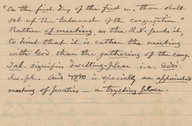 On the first day of the first m. thou shalt
set up the tabernacle of the congregation.
Rather of meeting, as the RV puts it,
to hint that it is rather the meeting
with God than the gathering of the cong.
Tab. signifies dwelling-place i.e. God's
&  is specially an appointed
meeting of parties – a trysting place.